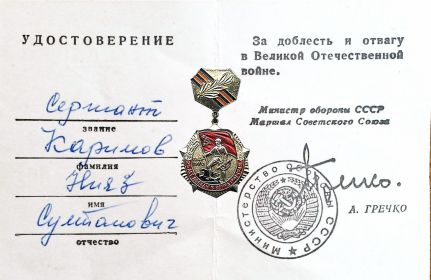 УДОСТОВЕРЕНИЕ
Сержант
звание
Каримов
фамилия
Нияз
имя
Султанович
отчество
За доблесть и отвагу
в Великой Отечественной
войне.
Министр обороны СССР
Маршал Советского Союза
Министерство обороны СССР
А. ГРЕЧКО